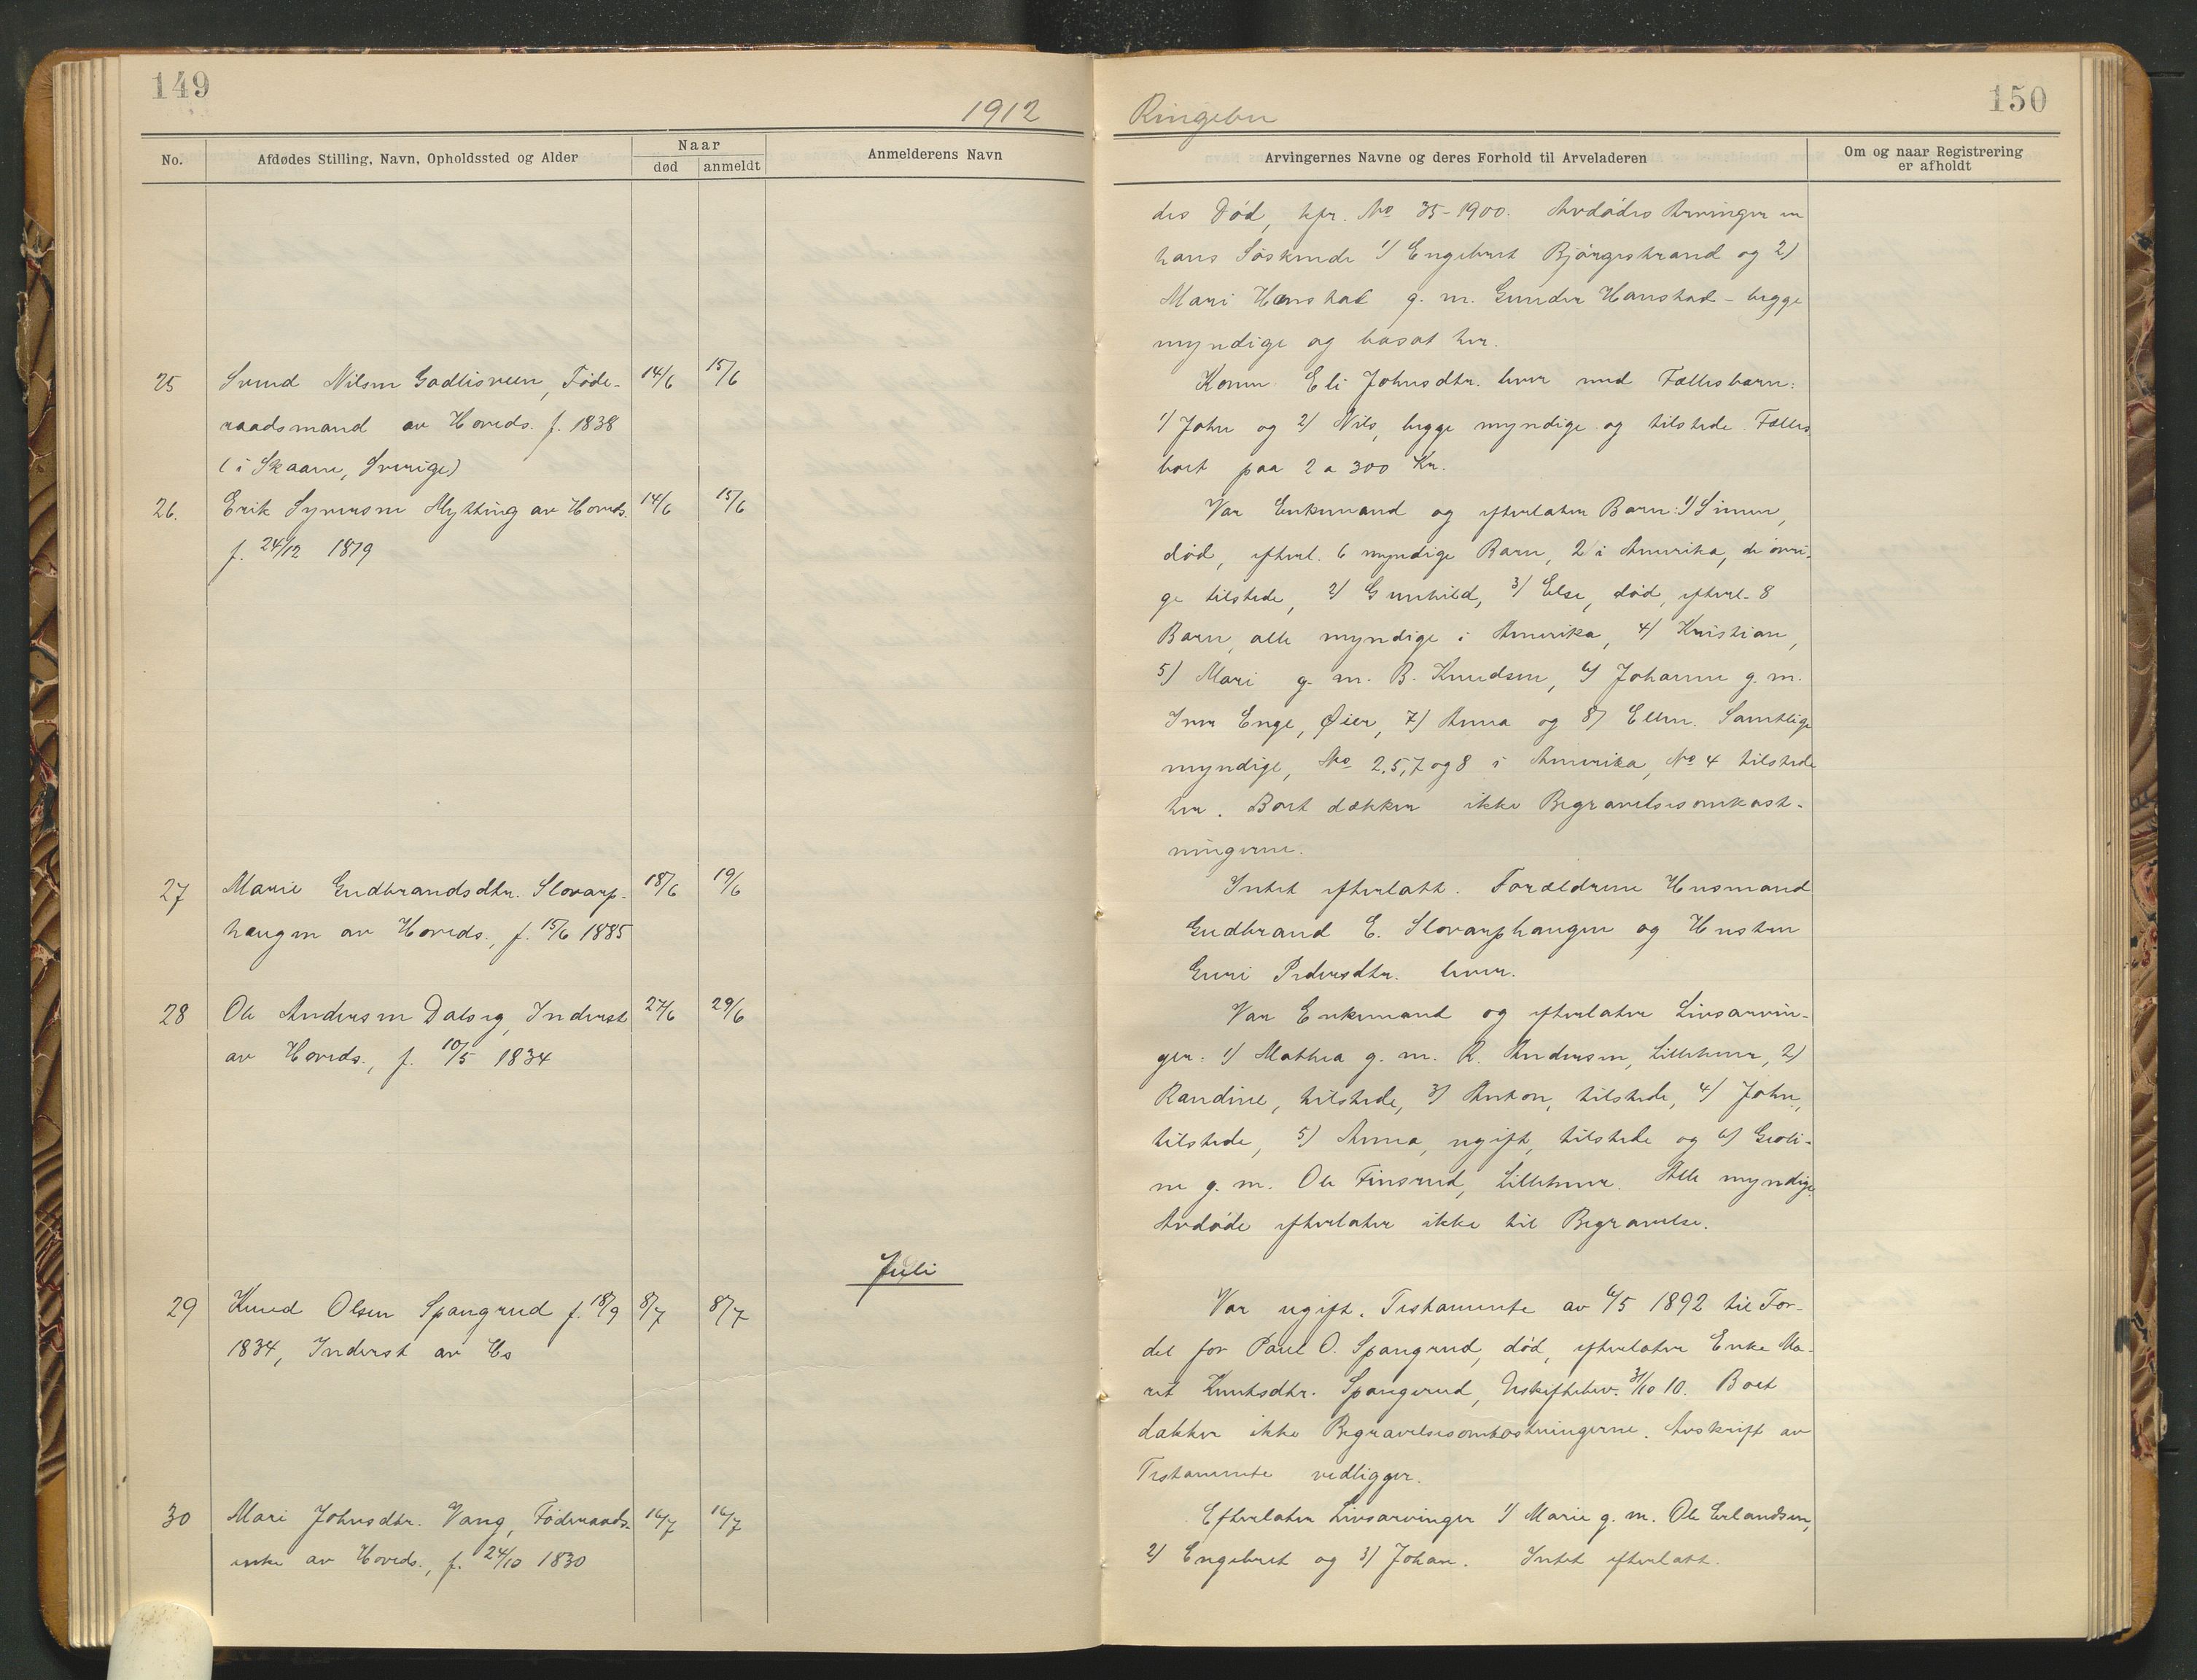 149
1912
No.
Afdødes Stilling, Navn, Opholdssted og Alder
Naar
død
anmeldt
Anmelderens Navn
25 Svend Nilsen Gadlisveen, Føde- 14/6 15/6
raadsmand av Hoveds. f. 1838
(i Skaane, Sverige)
26. Erik Syversen Mytting av Hoveds. 14/6 15/6
f. 24/12 1819
27 Marie Gudbrandsdtr. Slovarp- 18/6 19/6
haugen av Hoveds., f. 15/6 1885
28 Ole Andersen Dalseg, Inderst 27/6 29/6
av Hoveds., f. 10/5 1834
Juli
29 Knud Olsen Spangrud f. 18/9 8/7 8/7
1834, Inderst av Hs
30 Mari Johnsdtr. Vang, Føderaads- 16/7 16/7
enke av Hoveds., f. 24/10 1830
150
Ringebu
Arvingernes Navne og deres Forhold til Arveladeren
Om og naar Registrering
er afholdt
des Død, kfr. No 35-1900. Avdødes Arvinger er
hans Søskende 1/ Engebret Bjørgestrand og 2/
Mari Hanstad g. m. Gunder Hanstad - begge
myndige og bosat her.
Konen Eli Johnsdtr. lever med Fællesbarn:
1/ John og 2/ Nils, begge myndige og tilstede. Fælles
boet paa 2 a 300 Kr.
Var Enkemand og efterlater Barn: 1/ Simen,
død, efterl. 6 myndige Barn, 2 i Amerika, de øvri-
ge tilstede, 2/ Gunhild, 3/ Else, død, efterl. 8
Barn, alle myndige i Amerika, 4/ Kristian,
5/ Mari g. m. B. Knudsen, 6/ Johanne g. m.
Iver Enge, Øier, 7/ Anna og 8/ Ellen. Samtlige
myndige, No 2, 5, 7 og 8 i Amerika, No 4 tilstede
her. Boet dækker ikke Begravelsesomkost-
ningerne.
Intet efterlatt. Forældrene Husmand
Gudbrand E. Slovarphaugen og Hustru
Guri Pedersdtr. lever.
Var Enkemand og efterlater Livsarvin-
ger: 1/ Mathea g. m. R. Andersen, Lillehmr, 2/
Randine, tilstede, 3/ Anton, tilstede, 4/ John,
tilstede, 5/ Anna, ugift, tilstede og 6/ Groli-
ne g. m. Ole Finsrud, Lillehmr. Alle myndige.
Avdøde efterlater ikke til Begravelse.
Var ugift. Testamente av 6/5 1892 til For-
del for Paul O. Spangrud, død, efterlater Enke Ma-
rit Knutsdtr. Spangrud, Uskiftebev. 31/10 10. Boet
dækker ikke Begravelsesomkostningerne. Avskrift av
Testamente vedligger.
Efterlater Livsarvinger 1/ Marie g. m. Ole Erlandsen,
2/ Engebret og 3/ Johan. Intet efterlatt.